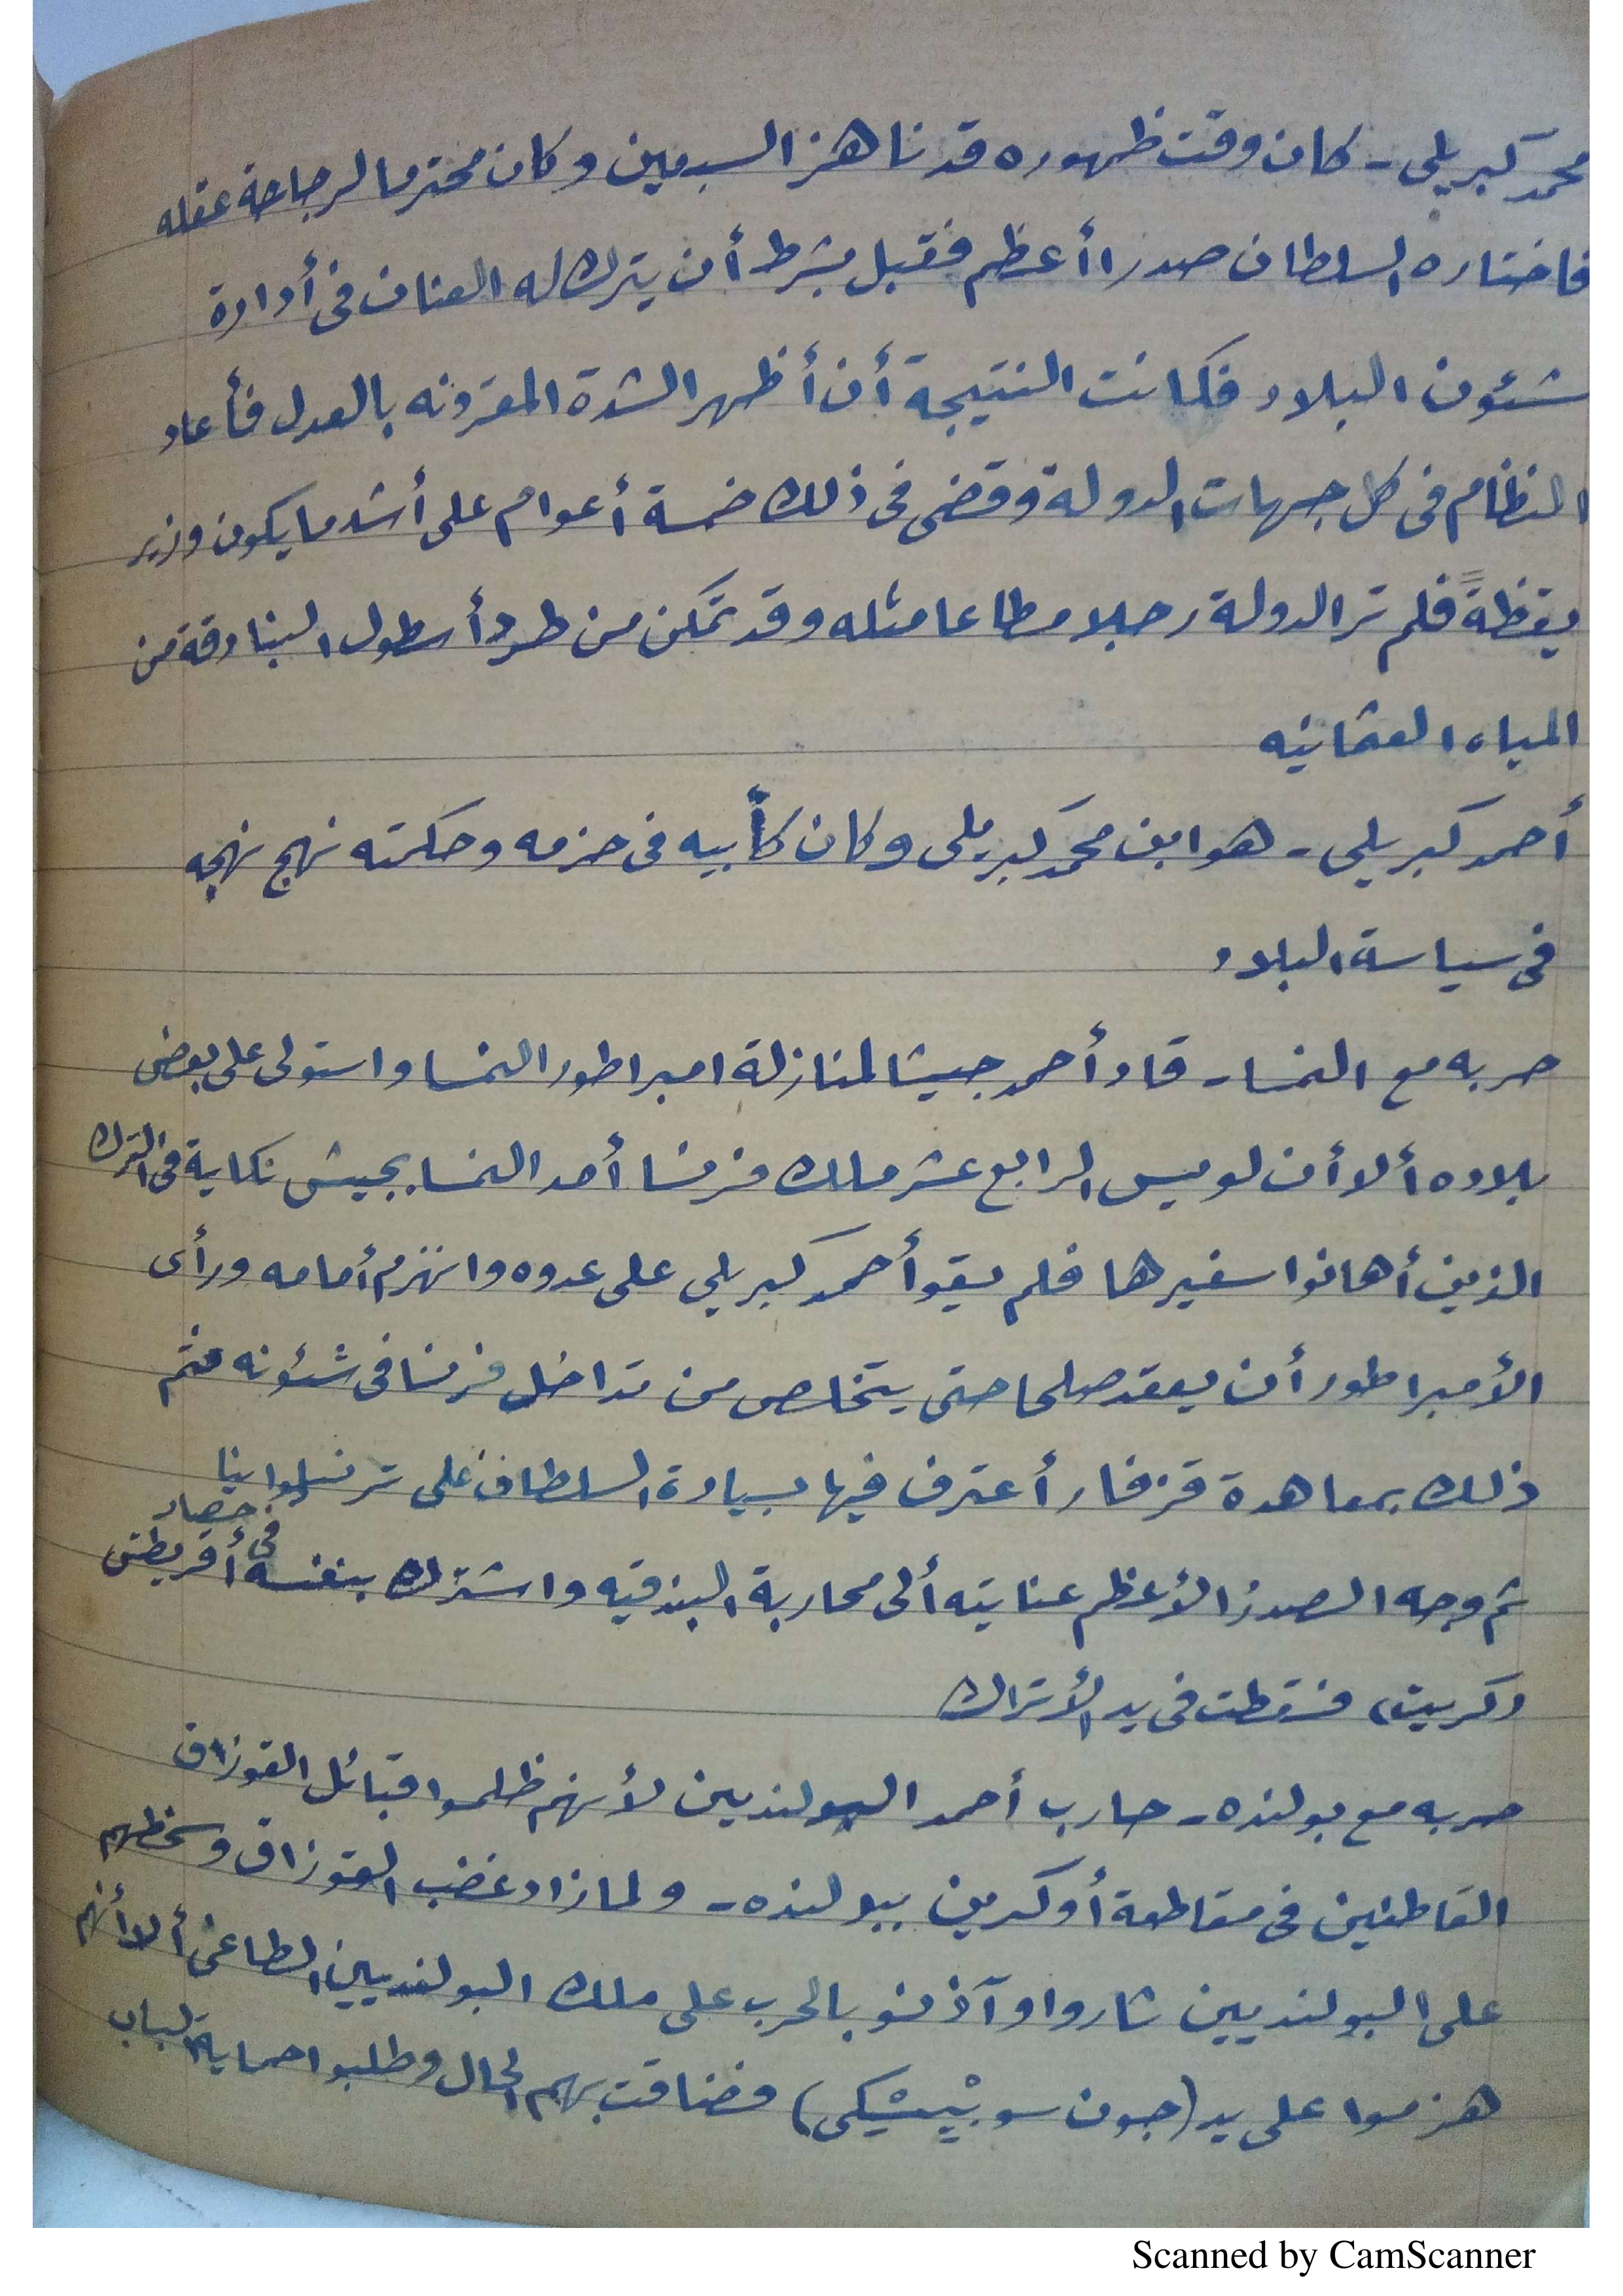 محمد كبريلى - كان وقت ظهوره قد ناهز السبعين وكان محترما لرجاحة عقله
فاختاره السلطان صدرا أعظم فقبل بشرط أن يترك له العنان فى أدارة
شئون البلاد فكانت النتيجة أن أظهر الشدة المقرونه بالعدل فأعاد
النظام فى كل جهات الدولة وقضى فى ذلك خمسة أعوام على أشد ما يكون وزير
يقظةً فلم تر الدولة رجلا مطاعا مثله وقد تمكن من طرد أسطول البنادقة من
المياه العثمانيه
أحمد كبريلى - هو ابن محمد كبريلى وكان كأبيه فى حزمه وحكمته نهج نهجه
فى سياسة البلاد
حربه مع النمسا - قاد أحمد جيشا لمنازلة امبراطور النمسا واستولى على بعض
بلاده ألا أن لويس الرابع عشر ملك فرنسا أمد النمسا بجيش نكاية فى الترك
الذين أهانوا سفيرها فلم يقو أحمد كبريلى على عدوه وانهزم أمامه ورأى
الأمبراطور أن يعقد صلحا حتى يتخلص من تداخل فرنسا فى شئونه فتم
ذلك بمعاهدة فزفار أعترف فيها بسيادة السلطان على ترنسلوانيا
ثم وجه الصدر الأعظم عنايته ألى محاربة البندقيه واشترك بنفسه فى حصار أقريطش
وكريت، فسقطت فى يد الأتراك
حربه مع بولنده - حارب أحمد البولنديين لأنهم ظلموا قبائل القوزاق
القاطنين فى مقاطعة أوكرين ببولنده - ولما زاد غضب القوزاق وسخطهم
على البولنديين ثاروا وآذنو بالحرب على ملك البولنديين الطاغى ألا أنهم
هزموا على يد (جون سوبيْيسْكى) فضاقت بهم الحال وطلبوا حماية الباب
Scanned by CamScanner